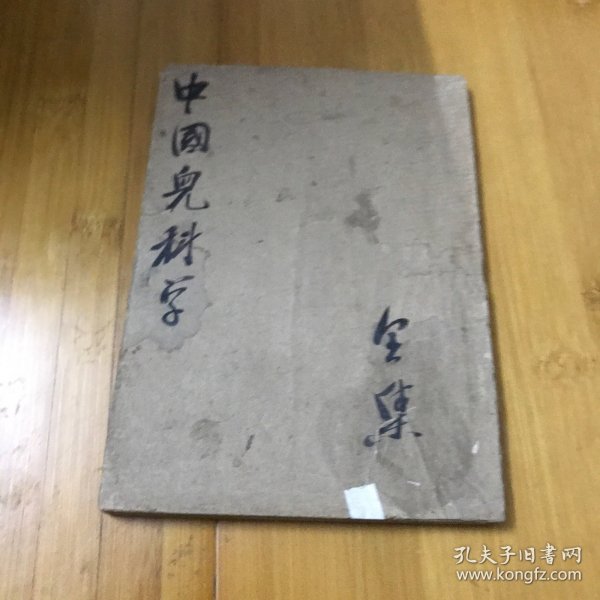 中國兒科学
全集
孔夫子旧書网
www.kongfz.com